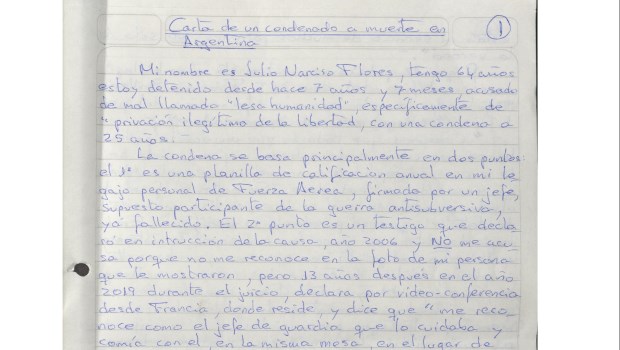 Carta de un condenado a muerte en
Argentina
1
Mi nombre es Julio Narciso Flores, tengo 64 años
estoy detenido desde hace 7 años y 7 meses, acusado
de mal llamado "lesa humanidad", específicamente de
"privación ilegítimo de la libertad, con una condena a
25 años.-
La condena se basa principalmente en dos puntos:
el 1° es una planilla de calificación anual en mi le
gajo personal de Fuerza Aerea, firmada por un jefe,
supuesto participante de la guerra antisubversiva,
ya fallecido. El 2° punto es un testigo que decla
ró en intrucción de la causa, año 2006 y NO me acu
sa porque no me reconoce en la foto de mi persona
que le mostraron, pero 13 años despues en el año
2019 durante el juicio, declara por video-conferencia
desde Francia, donde reside, y dice que "me reco-
noce como el jefe de guardia que lo cuidaba y
comía con el, en la misma mesa, en el lugar de